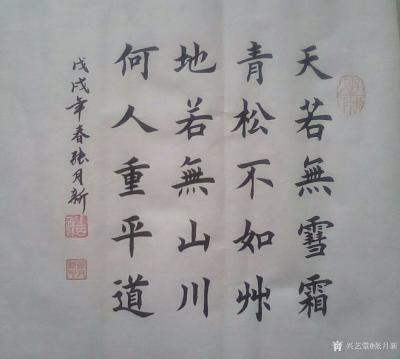 天若無雪霜
青松不如艸
地若無山川
何人重平道
戊戌年春張月新
兴艺堂@张月新